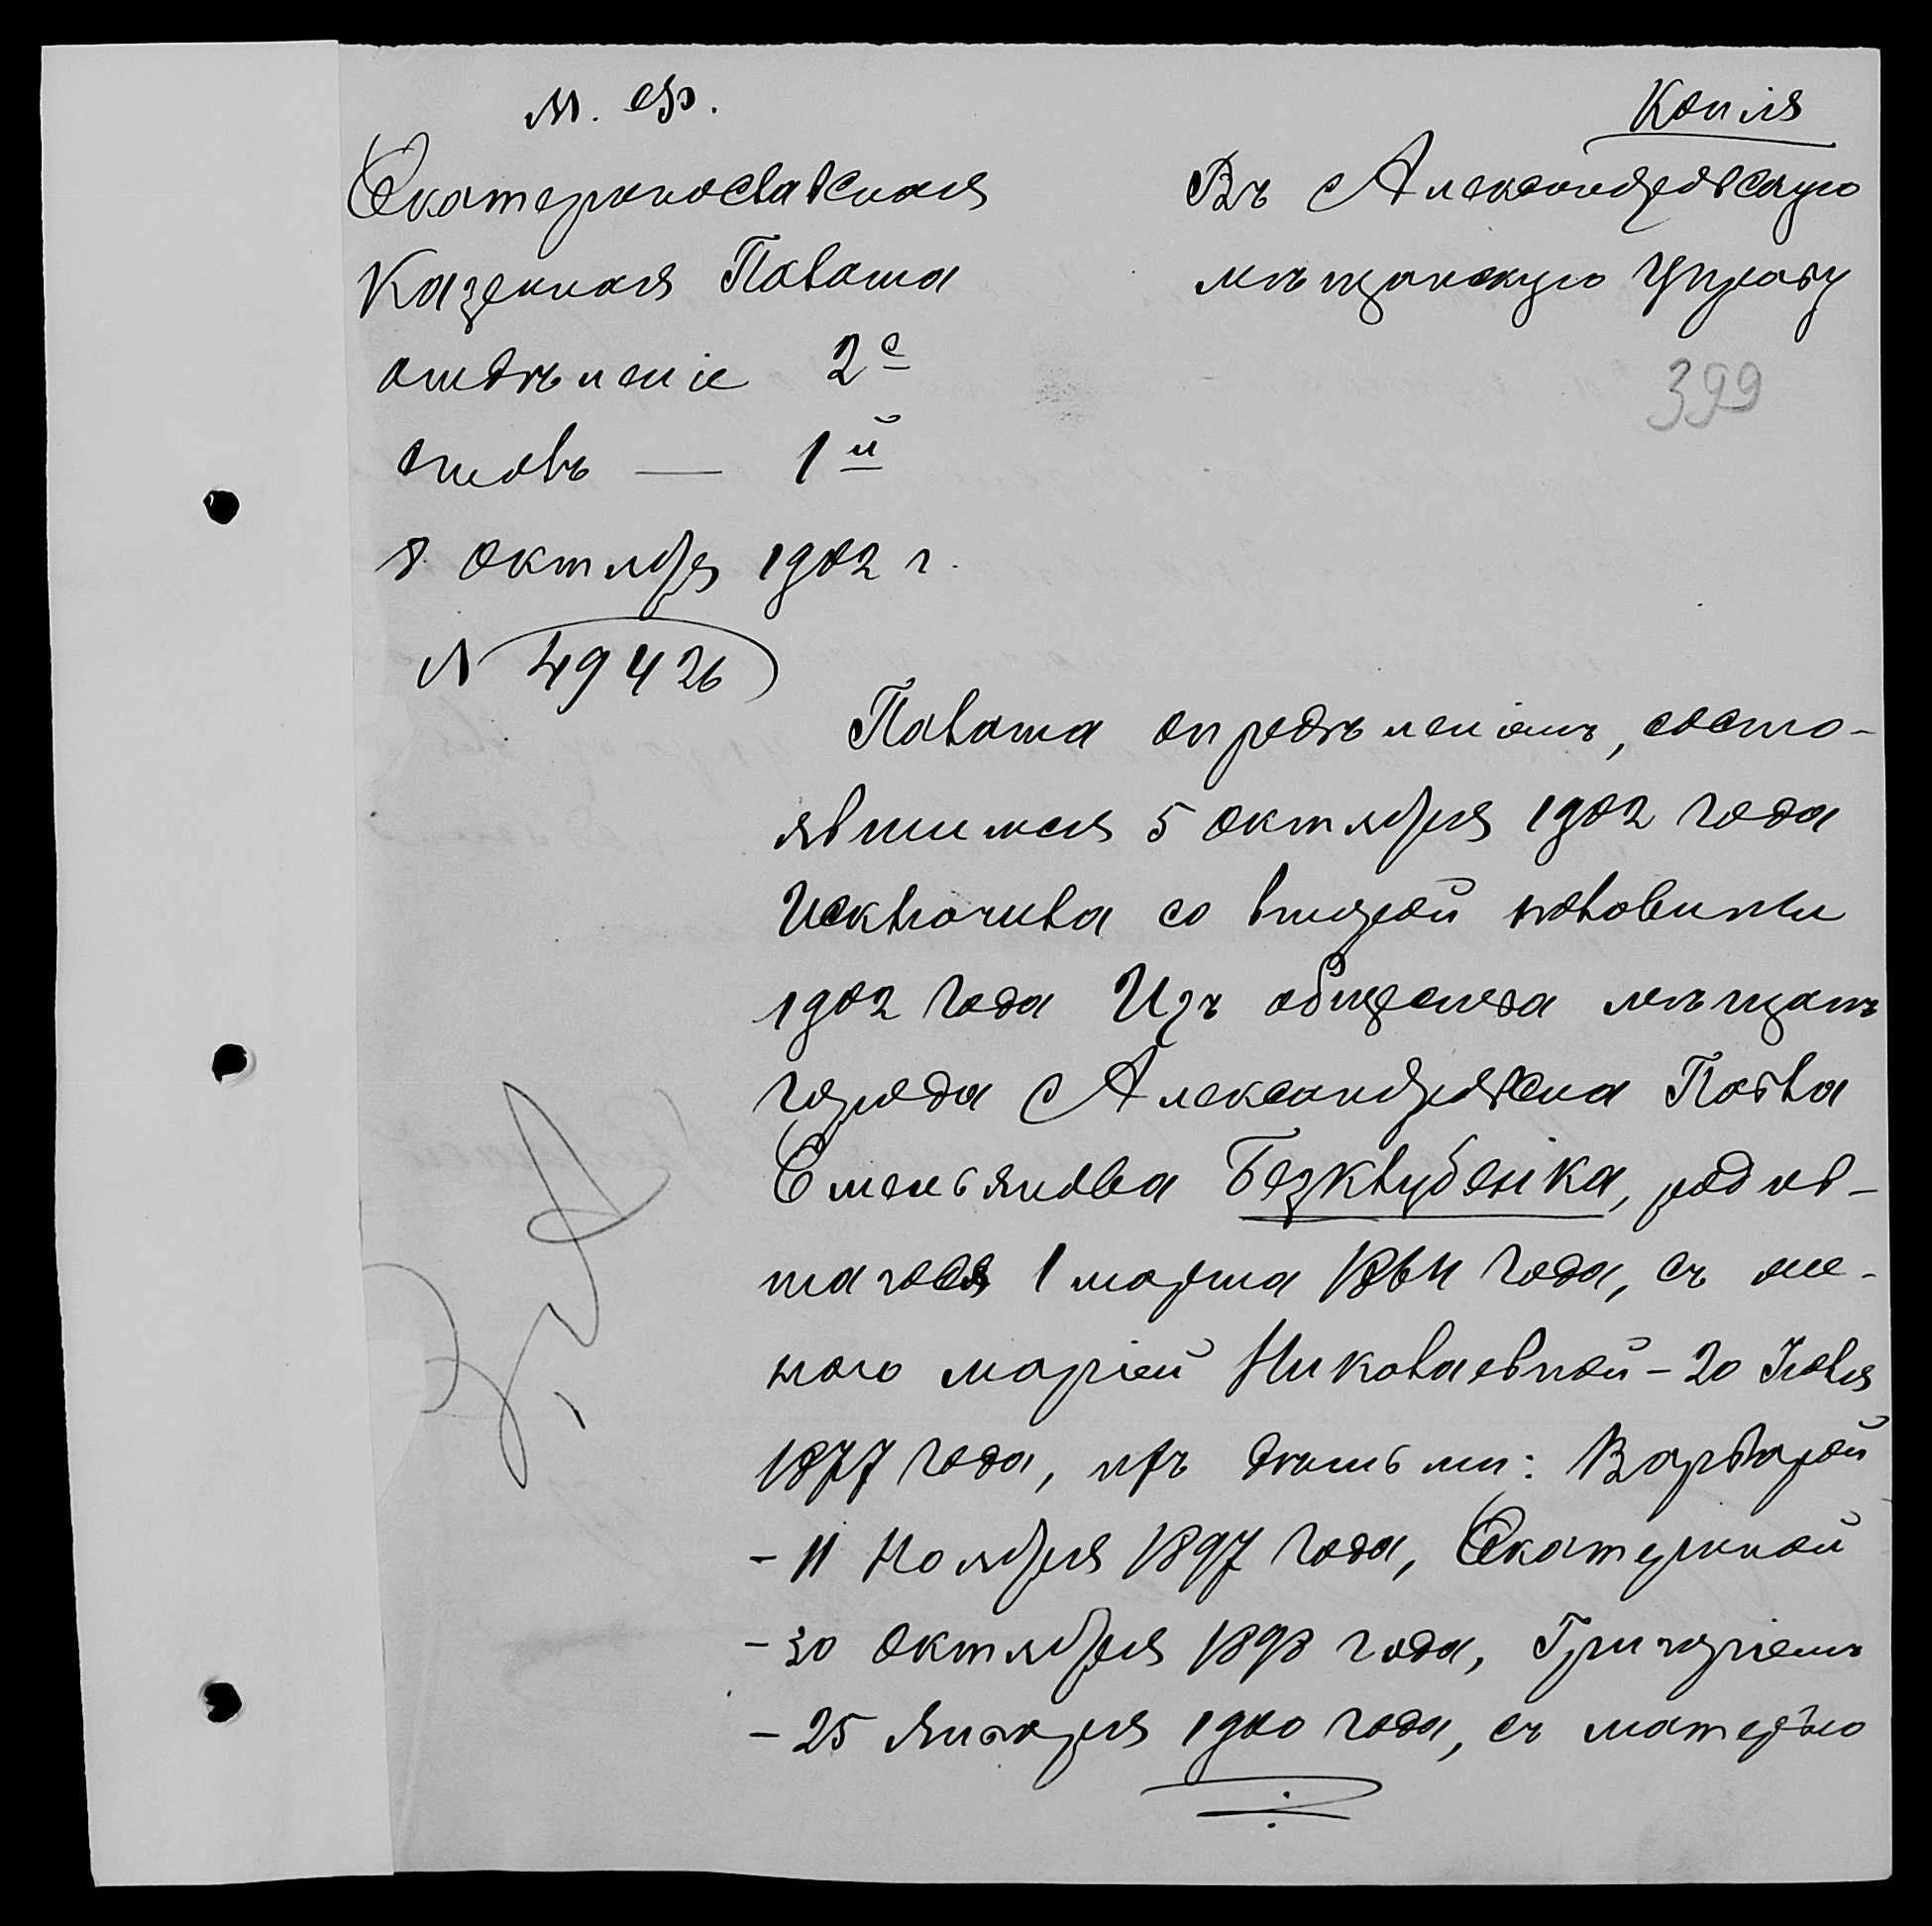 М. Ф.
Копія
Екатеринославская
Казенная Палата
отдѣленіе 2е
столъ — 1й
8 октября 1902 г.
№ 49426
Въ Александровскую
мѣщанскую Управу
399
Палата опредѣленіемъ, состо-
явшимся 5 октября 1902 года
Исключила со второй половины
1902 года Изъ общества мѣщанъ
города Александровска Павла
Емельянова Безклубенка, родив-
шагося 1 марта 1864 года, съ же-
ною Маріей Николаевной - 20 Іюля
1877 года, изъ дѣтьми: Варварой
- 11 Ноября 1897 года, Екатериной
- 30 октября 1898 года, Григоріемъ
- 25 Января 1900 года, съ матерью